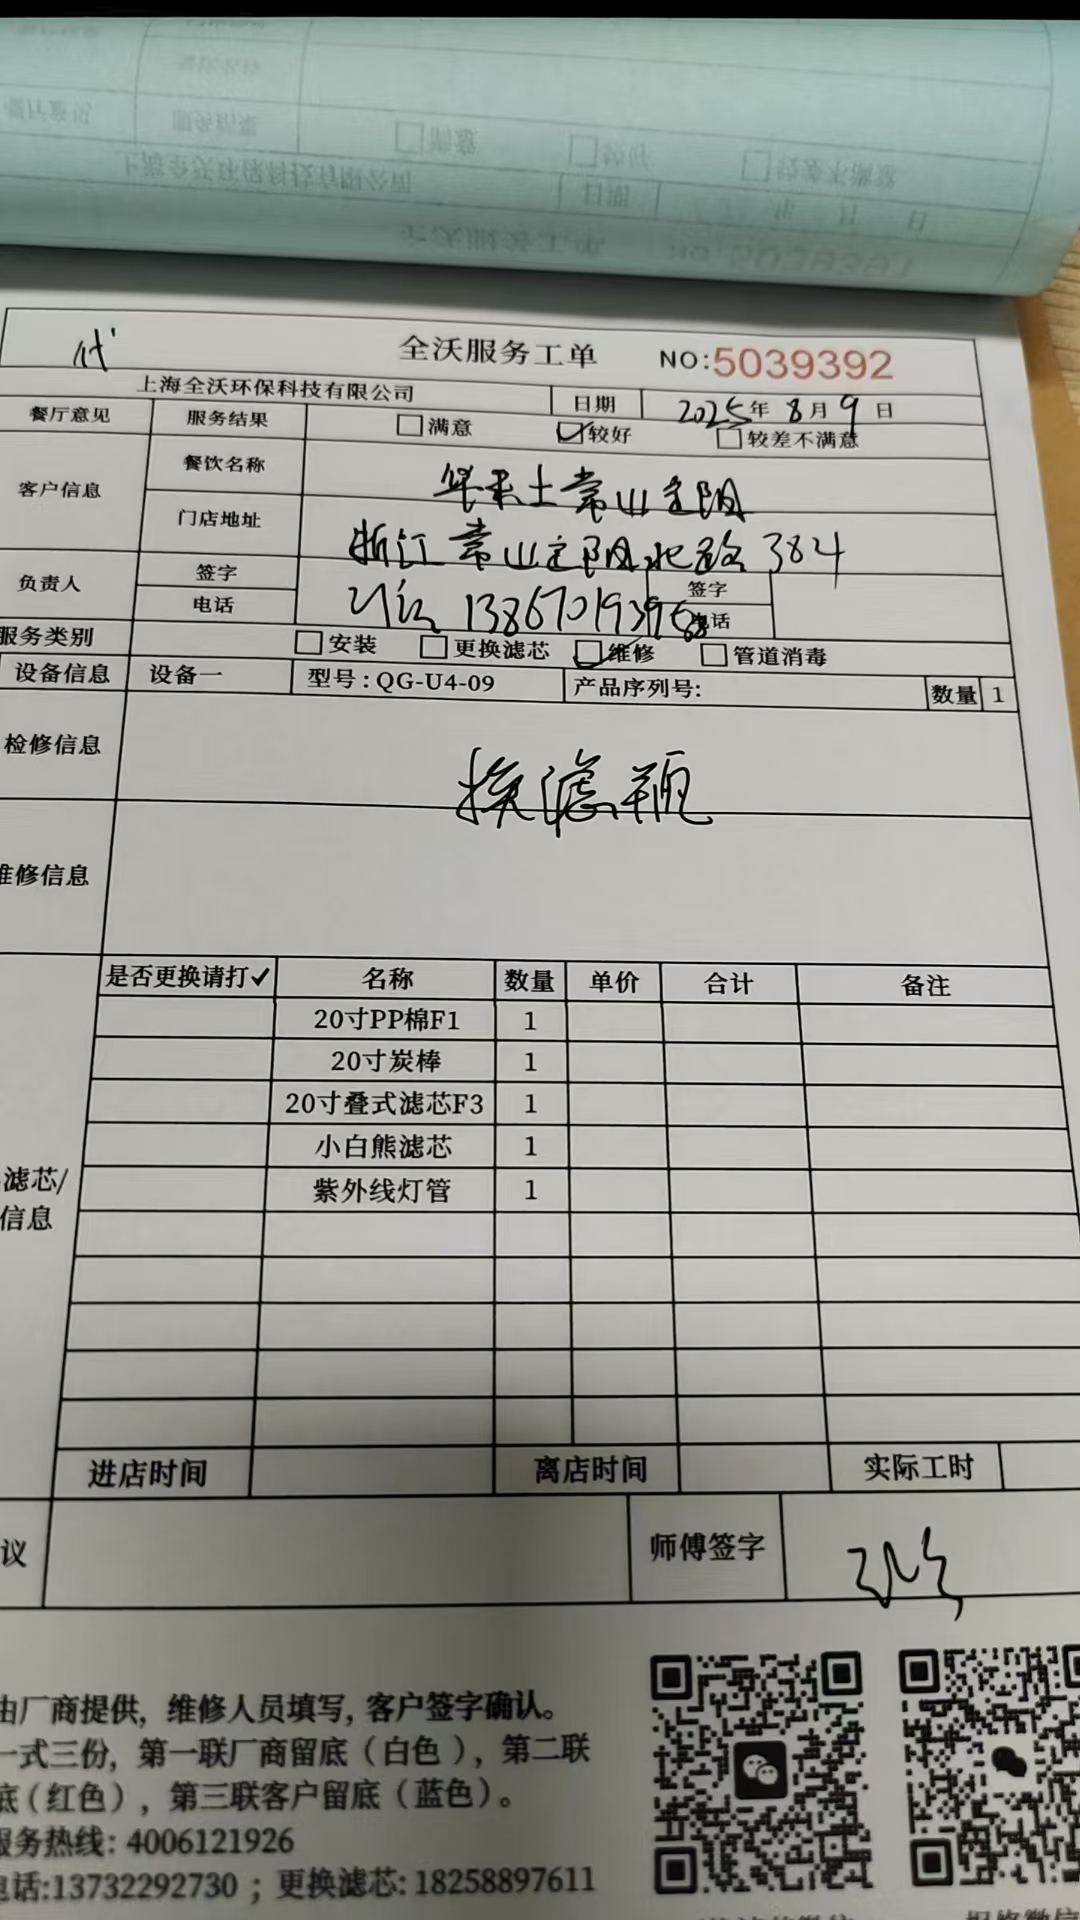 代
全沃服务工单 NO:5039392
上海全沃环保科技有限公司 日期 2025年 8月 9日
餐厅意见 服务结果 满意 较好 较差不满意
客户信息 餐饮名称 华莱士常山定阳
门店地址 浙江常山定阳北路384
负责人 签字 签字
电话 电话
服务类别 安装 更换滤芯 维修 管道消毒
设备信息 设备一 型号:QG-U4-09 产品序列号: 数量 1
检修信息 换滤瓶
维修信息
是否更换请打✓ 名称 数量 单价 合计 备注
20寸PP棉F1 1
20寸炭棒 1
20寸叠式滤芯F3 1
小白熊滤芯 1
紫外线灯管 1
滤芯/
信息
进店时间 离店时间 实际工时
议 师傅签字
由厂商提供, 维修人员填写, 客户签字确认。
一式三份, 第一联厂商留底(白色), 第二联
底(红色), 第三联客户留底(蓝色)。
服务热线: 4006121926
电话:13732292730 ; 更换滤芯: 18258897611